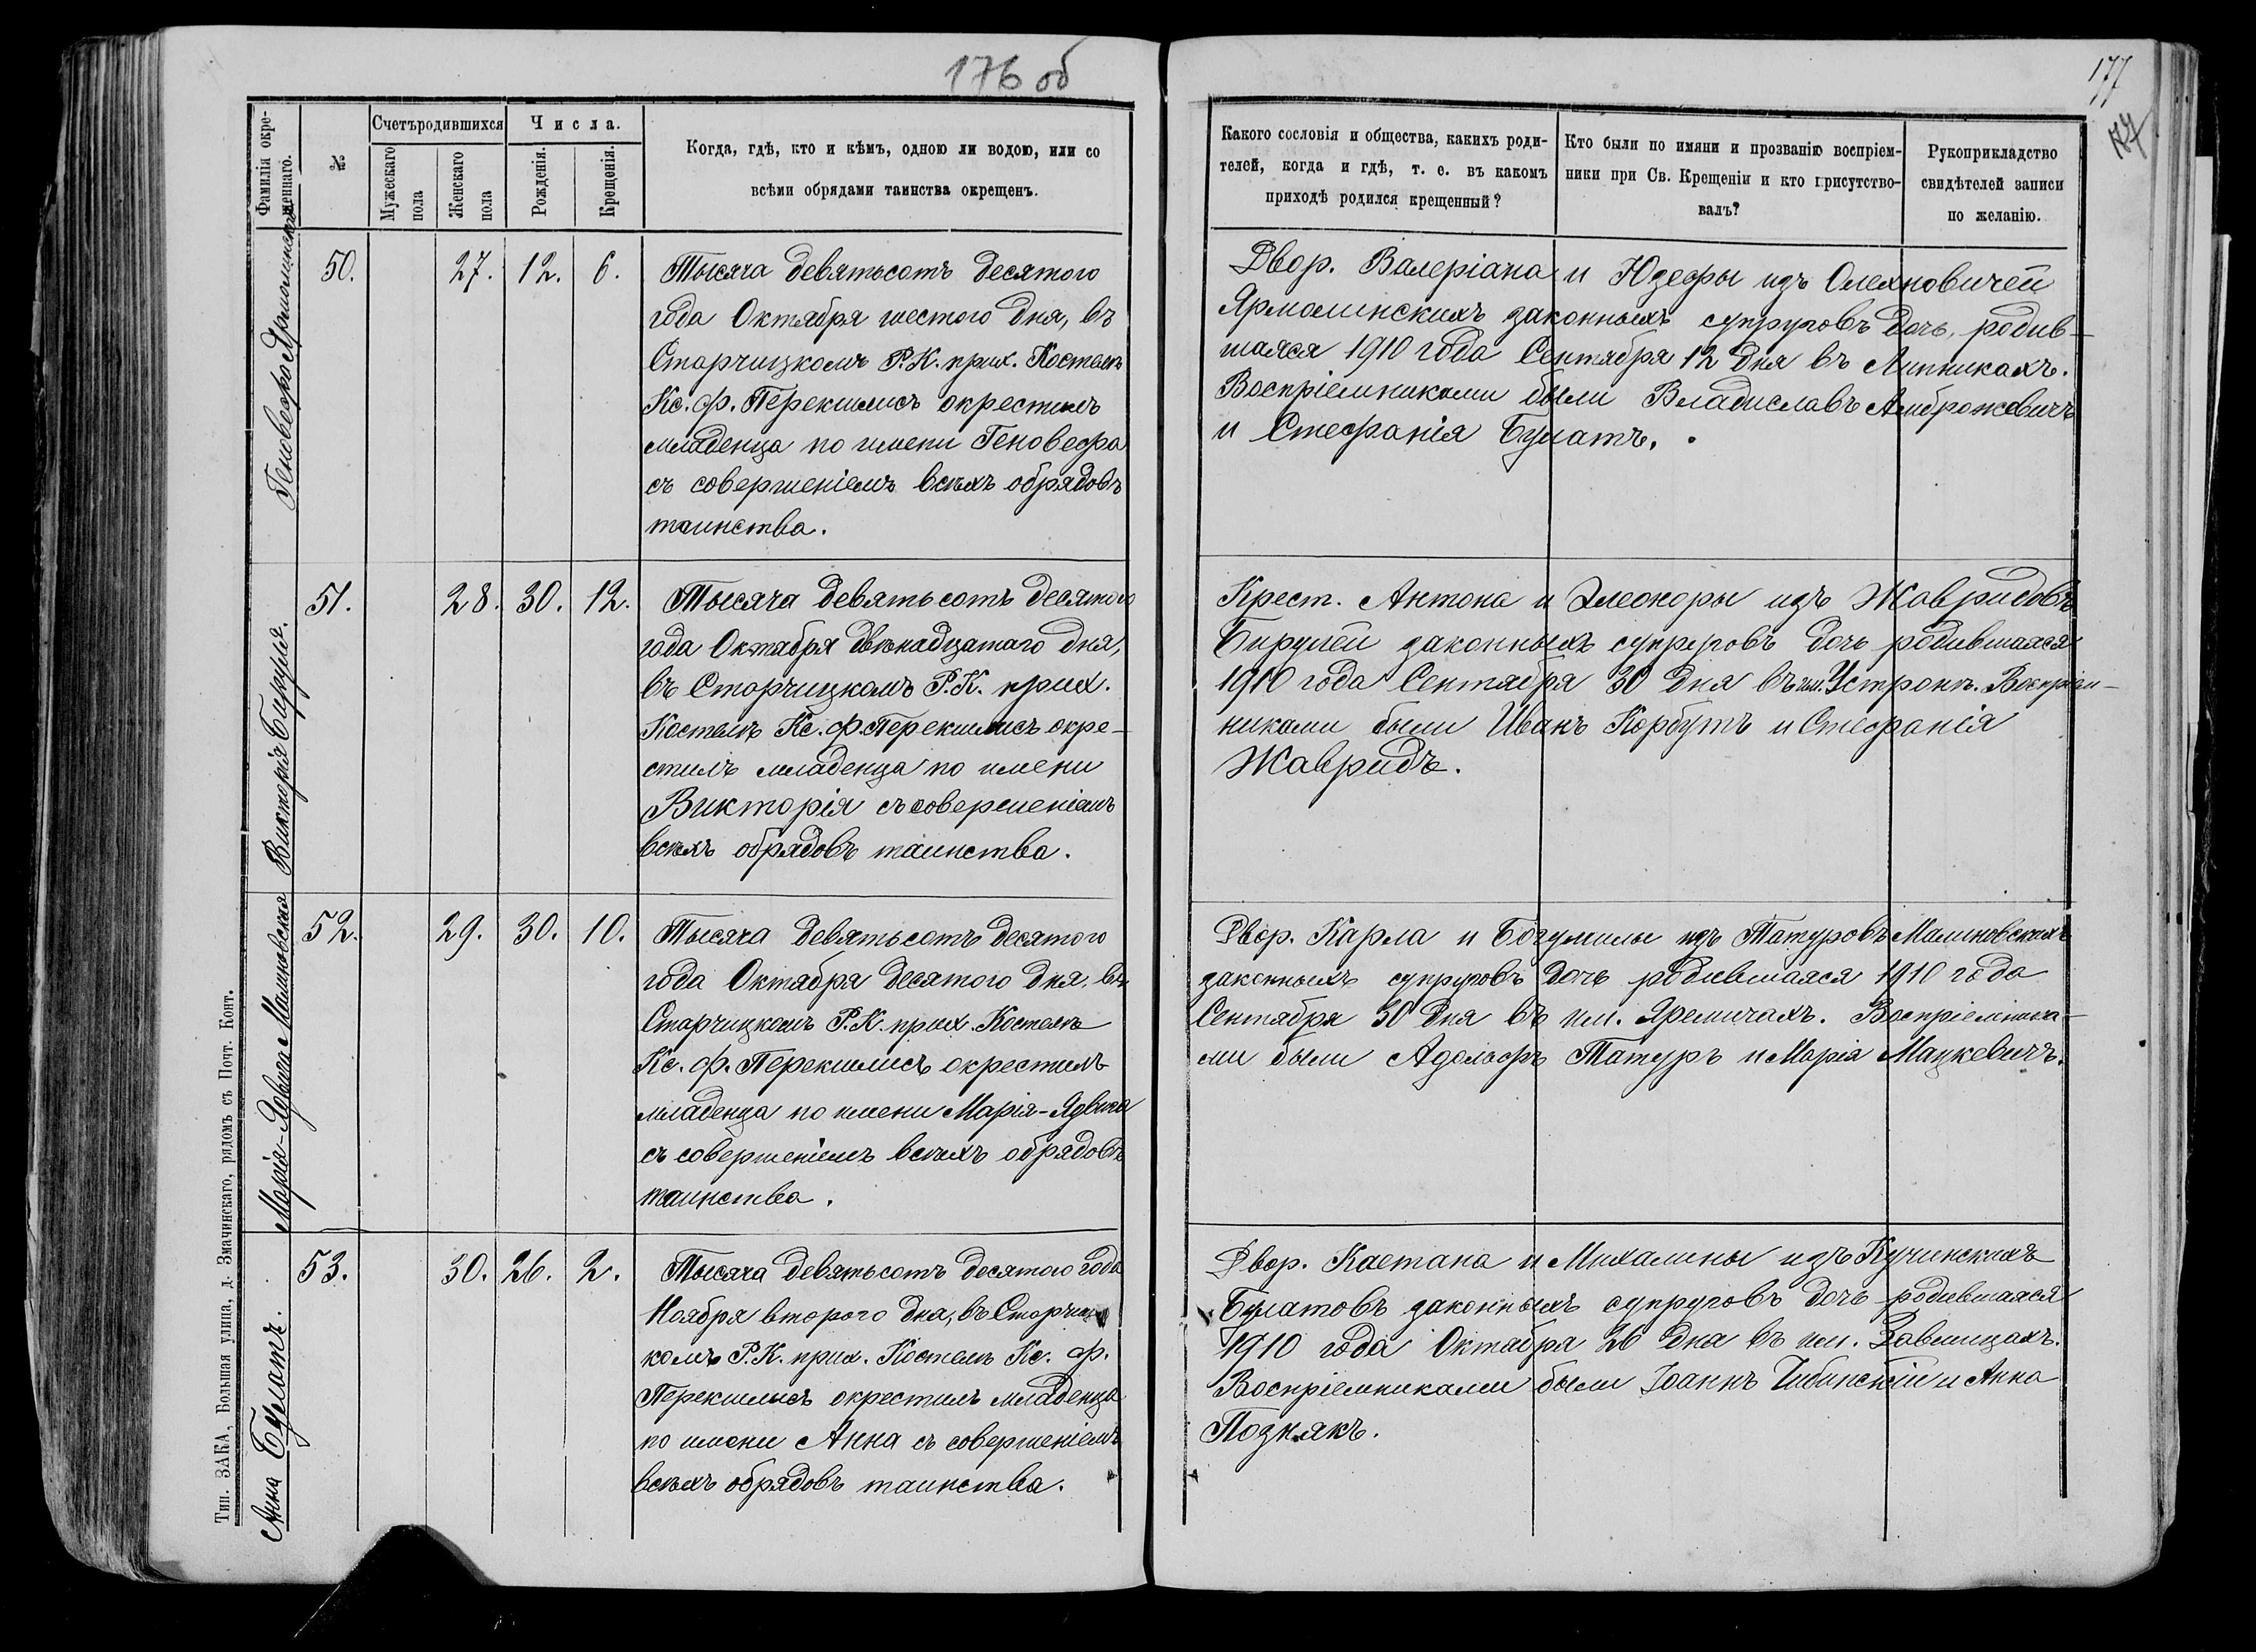 176 об
177
Фамилія окре-
щеннаго.
№
Счетъ родившихся
Мужескаго
пола
Женскаго
пола
Числа.
Рожденія.
Крещенія.
Когда, гдѣ, кто и кѣмъ, одною ли водою, или со
всѣми обрядами таинства окрещенъ.
Какого сословія и общества, какихъ роди-
телей, когда и гдѣ, т. е. въ какомъ
приходѣ родился крещенный?
Кто были по имяни и прозванію воспріем-
ники при Св. Крещеніи и кто присутство-
валъ?
Рукоприкладство
свидѣтелей записи
по желанію.
Геновефа Ярмолинская
50.
27.
12.
6.
Тысяча девятьсотъ десятого
года Октября шестого дня, въ
Старчицкомъ Р.К. прих. Костелѣ
Кс. Ф. Перекшлисъ окрестилъ
младенца по имени Геновефа
съ совершеніемъ всѣхъ обрядовъ
таинства.
Двор. Валеріана и Юзефы изъ Олехновичей
Ярмолинскихъ законныхъ супруговъ дочь, родив-
шаяся 1910 года Сентября 12 дня въ Липникахъ.
Воспріемниками были Владиславъ Амброжевичъ
и Стефанія Булатъ.
Викторія Бируля.
51.
28.
30.
12.
Тысяча девятьсотъ десятого
года Октября двѣнадцатаго дня,
въ Старчицкомъ Р.К. прих.
Костелѣ Кс. Ф. Перекшлисъ окре-
стилъ младенца по имени
Викторія съ совершеніемъ
всѣхъ обрядовъ таинства.
Крест. Антона и Элеоноры изъ Жавридовъ
Бирулей законныхъ супруговъ дочь родившаяся
1910 года Сентября 30 дня въ им. Устронѣ. Воспріем-
никами были Иванъ Корбутъ и Стефанія
Жавридъ.
Марія-Ядвига Малиновская
52.
29.
30.
10.
Тысяча девятьсотъ десятого
года Октября десятого дня, въ
Старчицкомъ Р.К. прих. Костелѣ
Кс. Ф. Перекшлисъ окрестилъ
младенца по имени Марія-Ядвига
съ совершеніемъ всѣхъ обрядовъ
таинства.
Двор. Карла и Богумилы изъ Татуровъ Малиновскихъ
законныхъ супруговъ дочь родившаяся 1910 года
Сентября 30 дня въ им. Яремичахъ. Воспріемника-
ми были Адольфъ Татуръ и Марія Мацкевичъ.
Анна Булатъ.
53.
30.
26.
2.
Тысяча девятьсотъ десятого года
Ноября второго дня, въ Старчиц
комъ Р.К. прих. Костелѣ Кс. Ф.
Перекшлисъ окрестилъ младенца
по имени Анна съ совершеніемъ
всѣхъ обрядовъ таинства.
Двор. Каетана и Михалины изъ Кучинскихъ
Булатовъ законныхъ супруговъ дочь родившаяся
1910 года Октября 26 дня въ им. Завшицахъ.
Воспріемниками были Іоаннъ Чибинскій и Анна
Познякъ.
Тип. ЗАКА, Большая улица, д. Змачинскаго, рядомъ съ Почт. Конт.